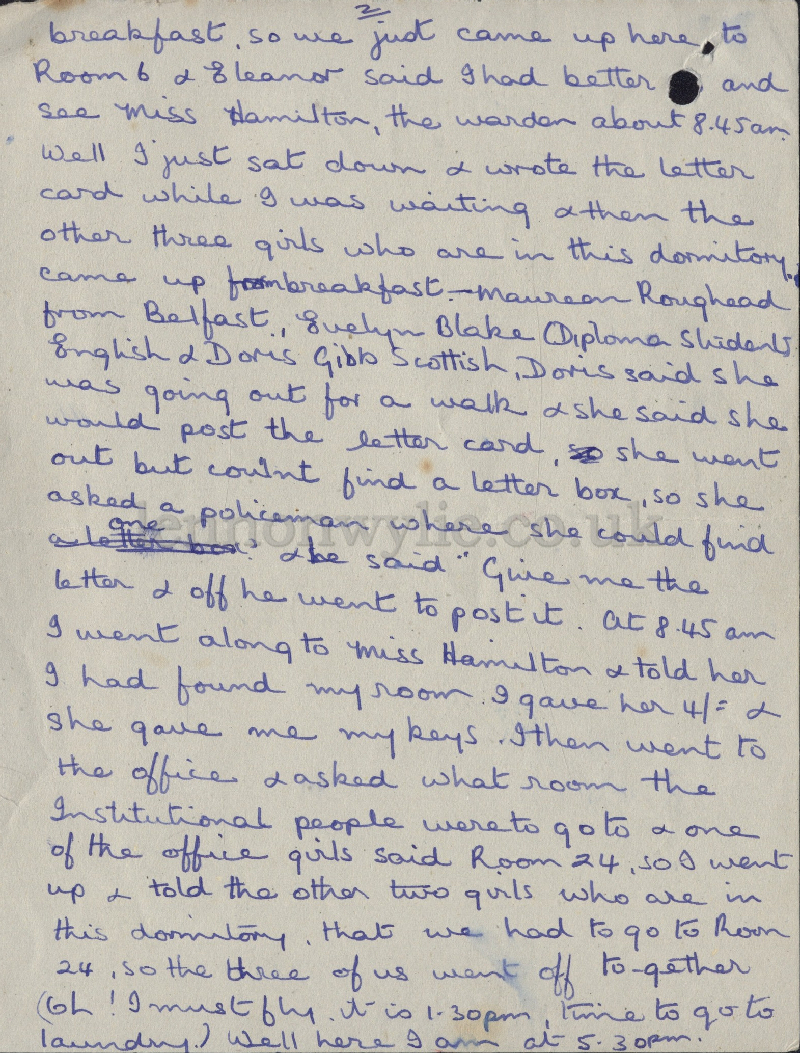 2
breakfast, so we just came up here, to
Room 6 & Eleanor said I had better and
see Miss Hamilton, the warden about 8.45am.
Well I just sat down & wrote the letter
card while I was waiting & then the
other three girls who are in this dormitory,
came up from breakfast. - Maureen Roughead
from Belfast, Evelyn Blake (Diploma Students)
English & Doris Gibb Scottish, Doris said she
was going out for a walk & she said she
would post the letter card, so she went
out but couln't find a letter box, so she
asked a policeman where she could find
one
a letter box & he said "Give me the
letter & off he went to post it. At 8.45 am
I went along to Miss Hamilton & told her
I had found my room. I gave her 4/= &
she gave me my keys. I then went to
the office & asked what room the
Institutional people were to go to & one
of the office girls said Room 24, so I went
up & told the other two girls who are in
this dormitory, that we had to go to Room
24, so the three of us went off to-gether
(Oh! I must fly, it is 1-30pm, time to go to
laundry.) Well here I am at 5.30pm.
lennonwylie.co.uk